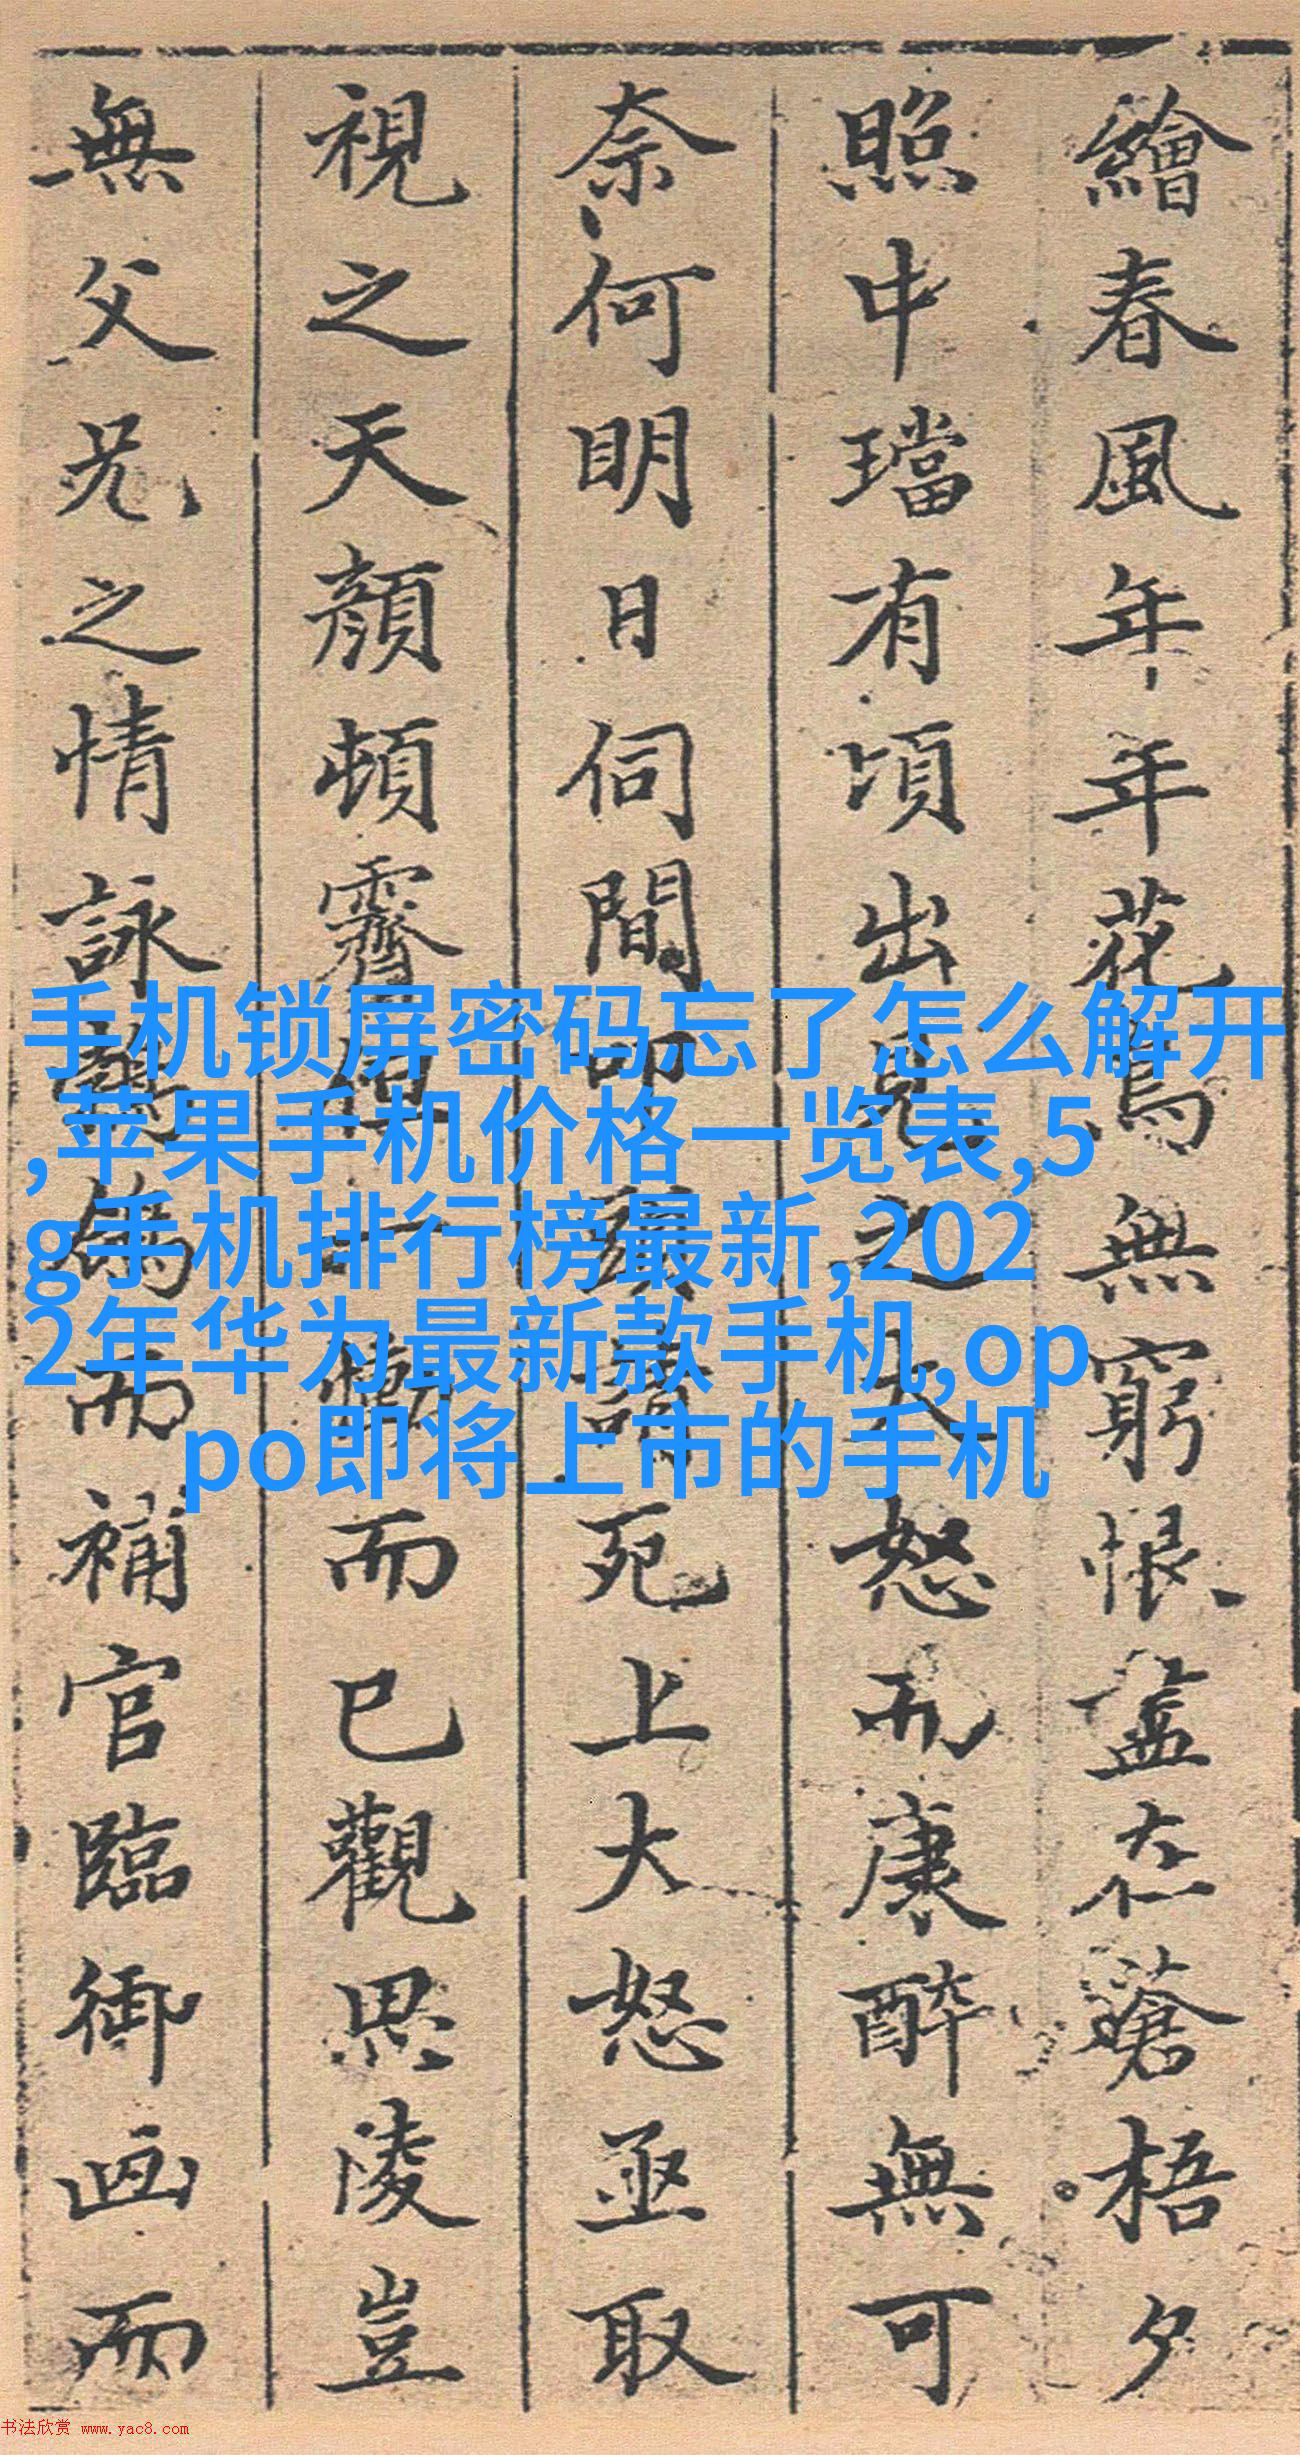 繪春風年年花鳥無窮恨盡在蒼梧夕
照中璫有頃出見之大怒而康醉無可
奈何明日伺間叩頭請死上大怒亟取
視之天顏頓霽但一慟而已觀思陵豈
無父兄之情詠鶺鴒而補官臨御画而
手机锁屏密码忘了怎么解开
,苹果手机价格一览表,5
g手机排行榜最新,202
2年华为最新款手机,op
po即将上市的手机
书法欣赏 www.yac8.com